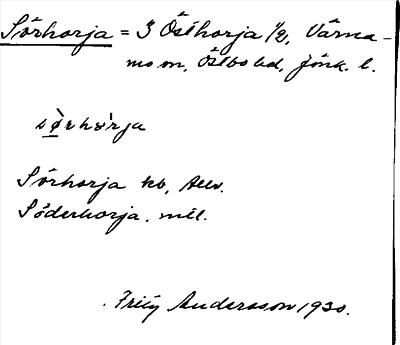 Sörhorja = 3 Östhorja 1/2, Värna-
mo sn, Östbo hd, Jönk. l.
sö̀rhòrja
Sörhorja kb,
Söderhorja. mtl.
Fritz Andersson 1930.